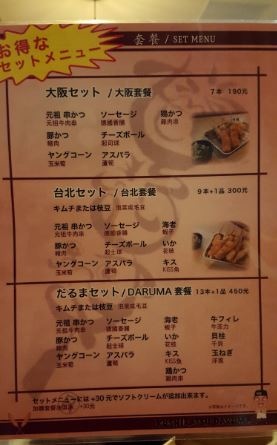 お得な
セットメニュー
套餐 / SET MENU
大阪セット / 大阪套餐 7本 190元
元祖 串かつ ソーセージ 鶏かつ
元祖牛肉串 德國香腸 雞肉串
豚かつ チーズボール
豬肉 起司球
ヤングコーン アスパラ
玉米筍 蘆筍
台北セット / 台北套餐 9本+1品 300元
キムチまたは枝豆 泡菜或毛豆
元祖 串かつ ソーセージ 海老
元祖牛肉串 德國香腸 蝦子
豚かつ チーズボール いか
豬肉 起士球 花枝
ヤングコーン アスパラ キス
玉米筍 蘆筍 KISS魚
だるまセット / DARUMA 套餐 13本+1品 460元
キムチまたは枝豆 泡菜或毛豆
元祖 串かつ ソーセージ 海老 牛フィレ
元祖牛肉串 德國香腸 蝦子 牛菲力
豚かつ チーズボール いか 貝柱
豬肉 起士球 花枝 干貝
ヤングコーン アスパラ キス 玉ねぎ
玉米筍 蘆筍 KISS魚 洋蔥
鶏かつ
雞肉串
セットメニューには +30元でソフトクリームが追加出来ます。